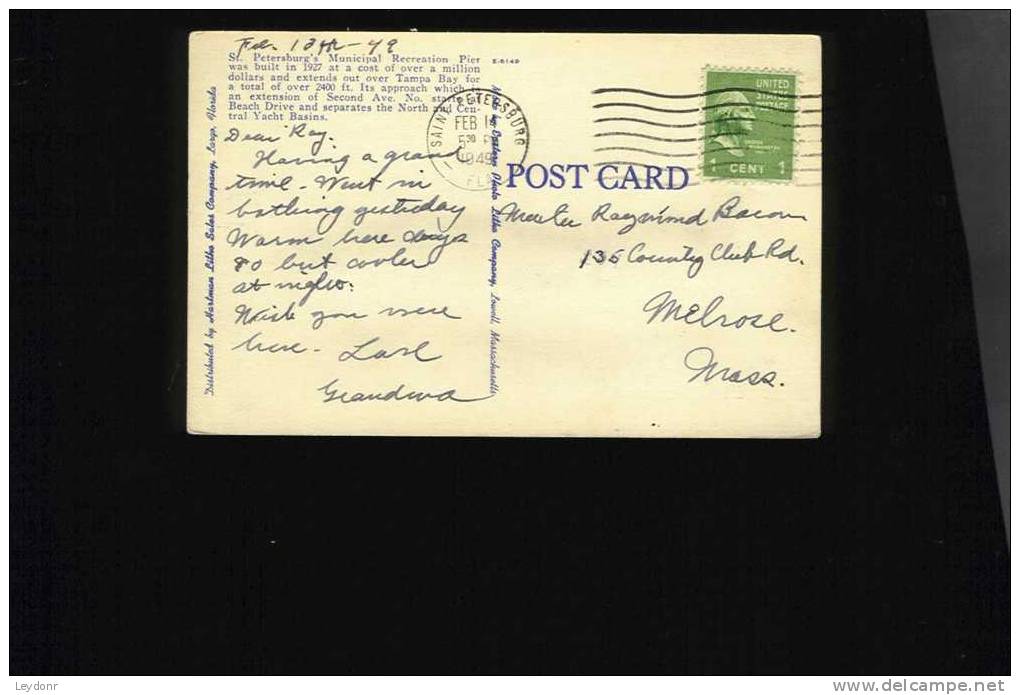 Feb. 13th - 49
St. Petersburg's Municipal Recreation Pier
was built in 1927 at a cost of over a million
dollars and extends out over Tampa Bay for
a total of over 2400 ft. Its approach which
an extension of Second Ave. No. starts
Beach Drive and separates the North and Cen-
tral Yacht Basins.
E-6149
Dear Ray.
Having a grand
time. Went in
bathing yesterday
Warm here days
80 but cooler
at night.
Wish you were
here. Love
Grandma
Distributed by Hartman Litho Sales Company, Largo, Florida
by Eastern Photo Litho Company, Lowell, Massachusetts
SAINT PETERSBURG
FEB 14
5 30 P
1949
FLA
UNITED
STATES
POSTAGE
1 CENT 1
POST CARD
Master Raymond Bacon
135 Country Club Rd.
Melrose.
Mass.
Leydonr
delcampe.net